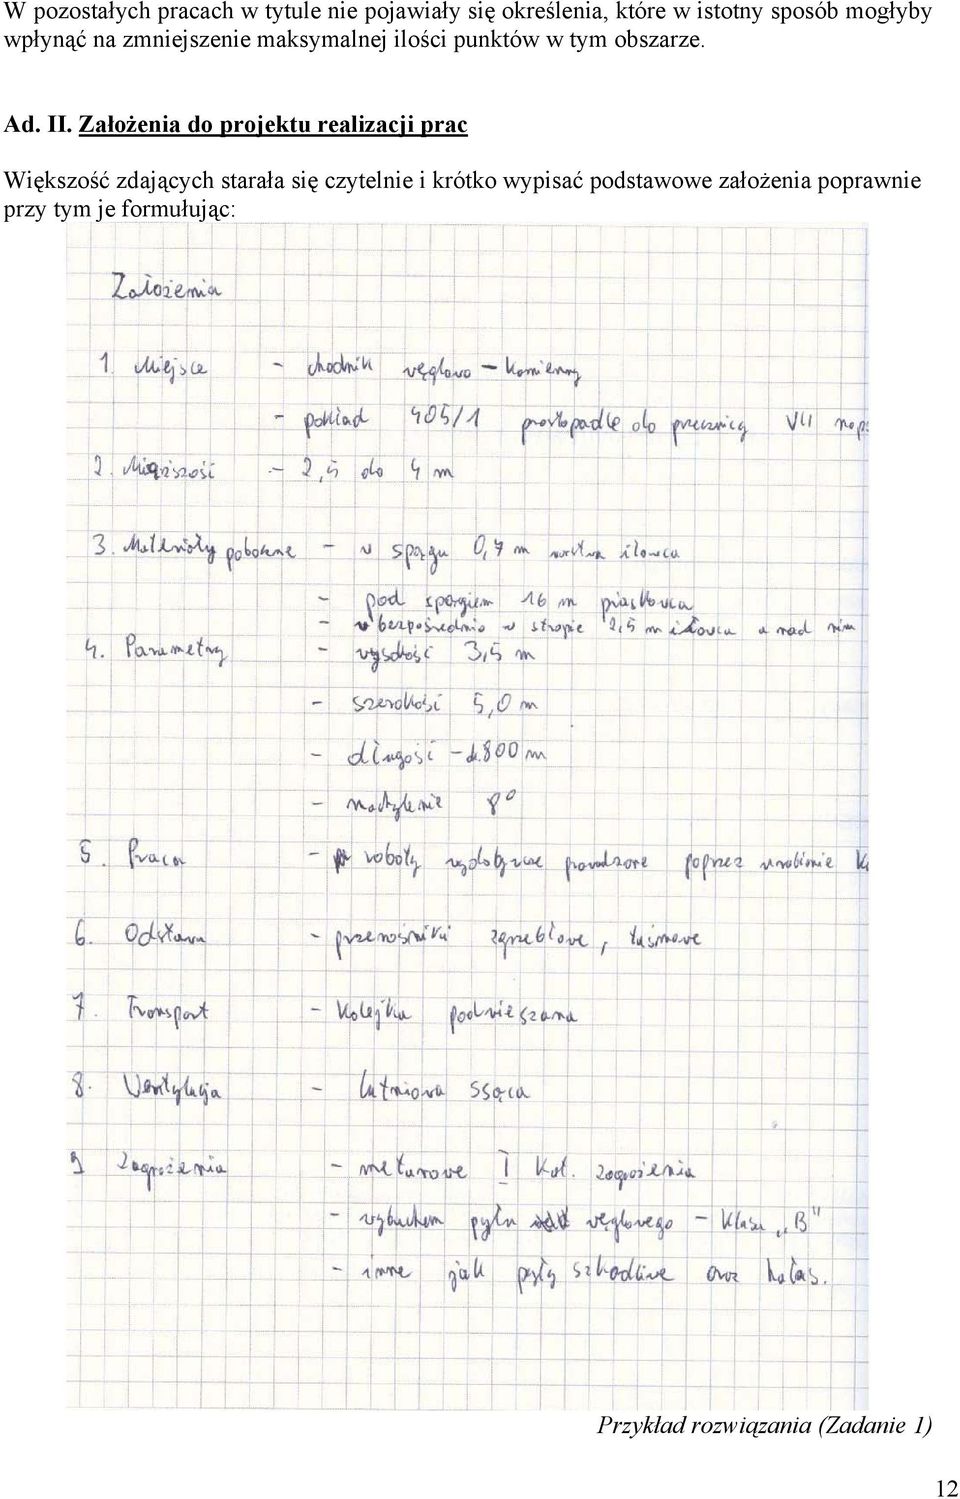 W pozostałych pracach w tytule nie pojawiały się określenia, które w istotny sposób mogłyby
wpłynąć na zmniejszenie maksymalnej ilości punktów w tym obszarze.
Ad. II. Założenia do projektu realizacji prac
Większość zdających starała się czytelnie i krótko wypisać podstawowe założenia poprawnie
przy tym je formułując:
Założenia
1. Miejsce - chodnik węglowo - kamienny
- pokład 405/1 prostopadle do przecznicy VII
2. Miąższość - 2,5 do 4 m
3. Materiały poboczne - w spągu 0,7 m warstwa iłowca
- pod spągiem 16 m piaskowca
- w bezpośrednio w stropie 2,5 m iłowca a nad nim
4. Parametry - wysokość 3,5 m
- szerokość 5,0 m
- długość - 800 m
- nachylenie 8°
5. Praca - roboty wydobywcze prowadzone poprzez urabianie
6. Odstawa - przenośniki zgrzebłowe, taśmowe
7. Transport - kolejka podwieszana
8. Wentylacja - lutniowa ssąca
9 Zagrożenia - metanowe I kat. zagrożenia
- wybuchem pyłu węglowego - klasa "B"
- inne jak pyły szkodliwe oraz hałas.
Przykład rozwiązania (Zadanie 1)
12